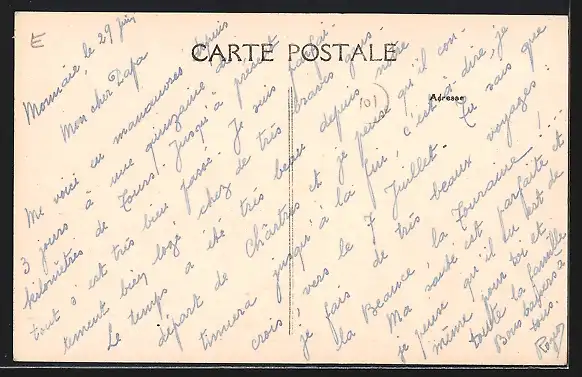 E
CARTE POSTALE
Adresse
101
Monnaie, le 29 Juin
Mon cher Papa
Me voici en manœuvres depuis
3 jours à une quinzaine de
kilomètres de Tours. Jusqu'à présent
tout s'est très bien passé. Je suis parfai-
tement bien logé, chez de très braves gens.
Le temps a été très beau depuis notre
départ de Chartres et je pense qu'il con-
tinuera jusqu'à la fin, c'est-à-dire, je
crois, vers le 7 Juillet. Tu sais que
je fais de très beaux voyages:
la Beauce, la Touraine, ...
Ma santé est parfaite et
je pense qu'il en est de
même pour toi et
toute la famille
Bons baisers à
tous.
Roger